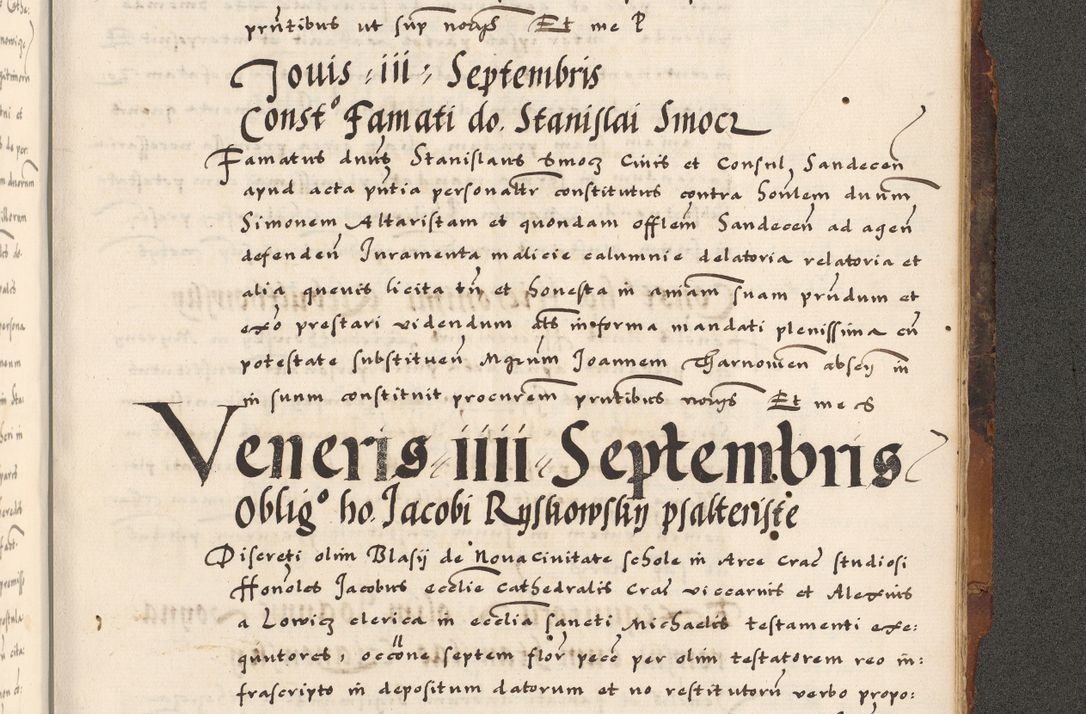 prñtibus ut sup̃ nõrijs Et me P
Jouis iii Septembris
Constº Famati do. Stanislai Smocz
Famatus dnũs Stanislaus Smocz Ciuis et Consul Sandeceñ
apud acta pñtia personałtr constitutus contra honłem dnũm
Simonem Altaristam et quondam offłem Sandeceñ ad ageñ
defendeñ Iuramenta malicie calumnie delatoria relatoria et
alia queuis licita tñ et honesta in aniam suam prñdum et
exõ prestari videndum in forma mandati plenissima cũ
potestate substitueñ Mgrũm Joannem Tharnouieñ absen in
in suum constituit procurem prñtibus norijs Et me S
Veneris iiii Septembris
Obligº ho. Jacobi Ryskowskij psalteriste
Discreti olim Blasij de Nova civitate schole in Arce Crac̃ studiosi
Honõles Jacobus ecclie Cathedralis Crac̃ viccarius et Alexius
a Lowicz clerica in ecclia sancti Michaelis testamenti exe:
quutores, occõne septem flor pecc̃ per olim testatorem reo in:
frascripto in depositum datorum et no restitutorũ verbo propo: